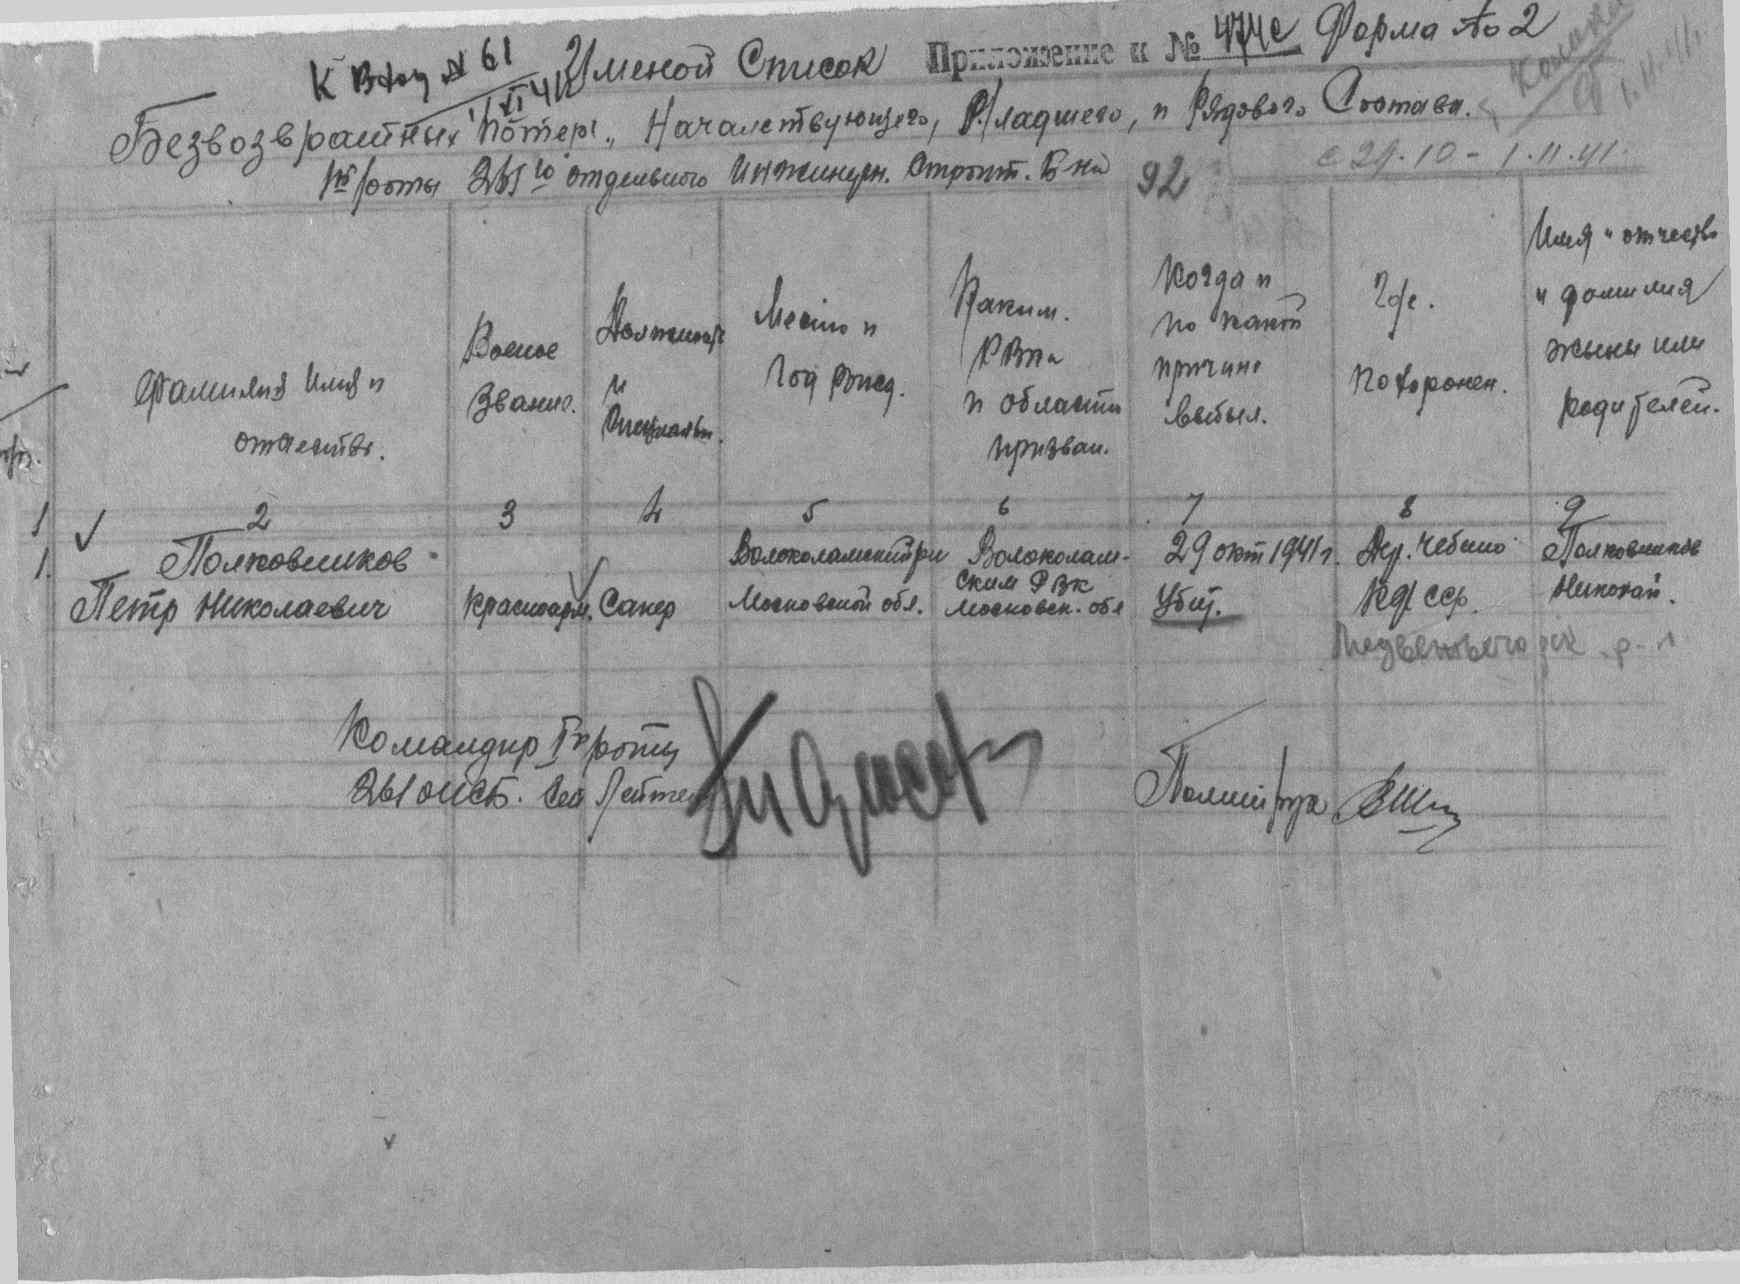 К Вход № 61
1/XI 41
Именой Список Приложение к № 474с Форма № 2
Безвозвратных Потерь, Началствующего, Младшего, и Рядового Состава.
1й роты 261го отдельного Инженерн. Строит. Б-на 92 с 29.10 - 1.11.41.
Фамилия Имя и
отчество.
Военое
Звание.
Должность
и
Специальн.
Место и
Год рожд.
Каким.
РВКа
и области
призван.
Когда и
по какой
причине
выбыл.
Где.
похоронен.
Имя и отчество
и фамилия
жены или
родителей.
1 2 3 4 5 6 7 8 9
1. Полковников
Петр Николаевич
Красноарм. Сапер
Волоколамский р-н
Московской обл.
Волоколам-
ским РВК
Московск. обл
29 окт 1941 г.
Убит.
Дер. Чебино
КФССР.
Медвежьегорск. р-н
Полковников
Николай.
Командир 1й роты
261 ОИСБ.
Политрук